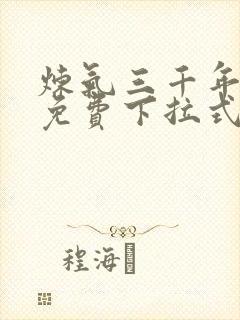 炼氣三千年
免費下拉式
程海